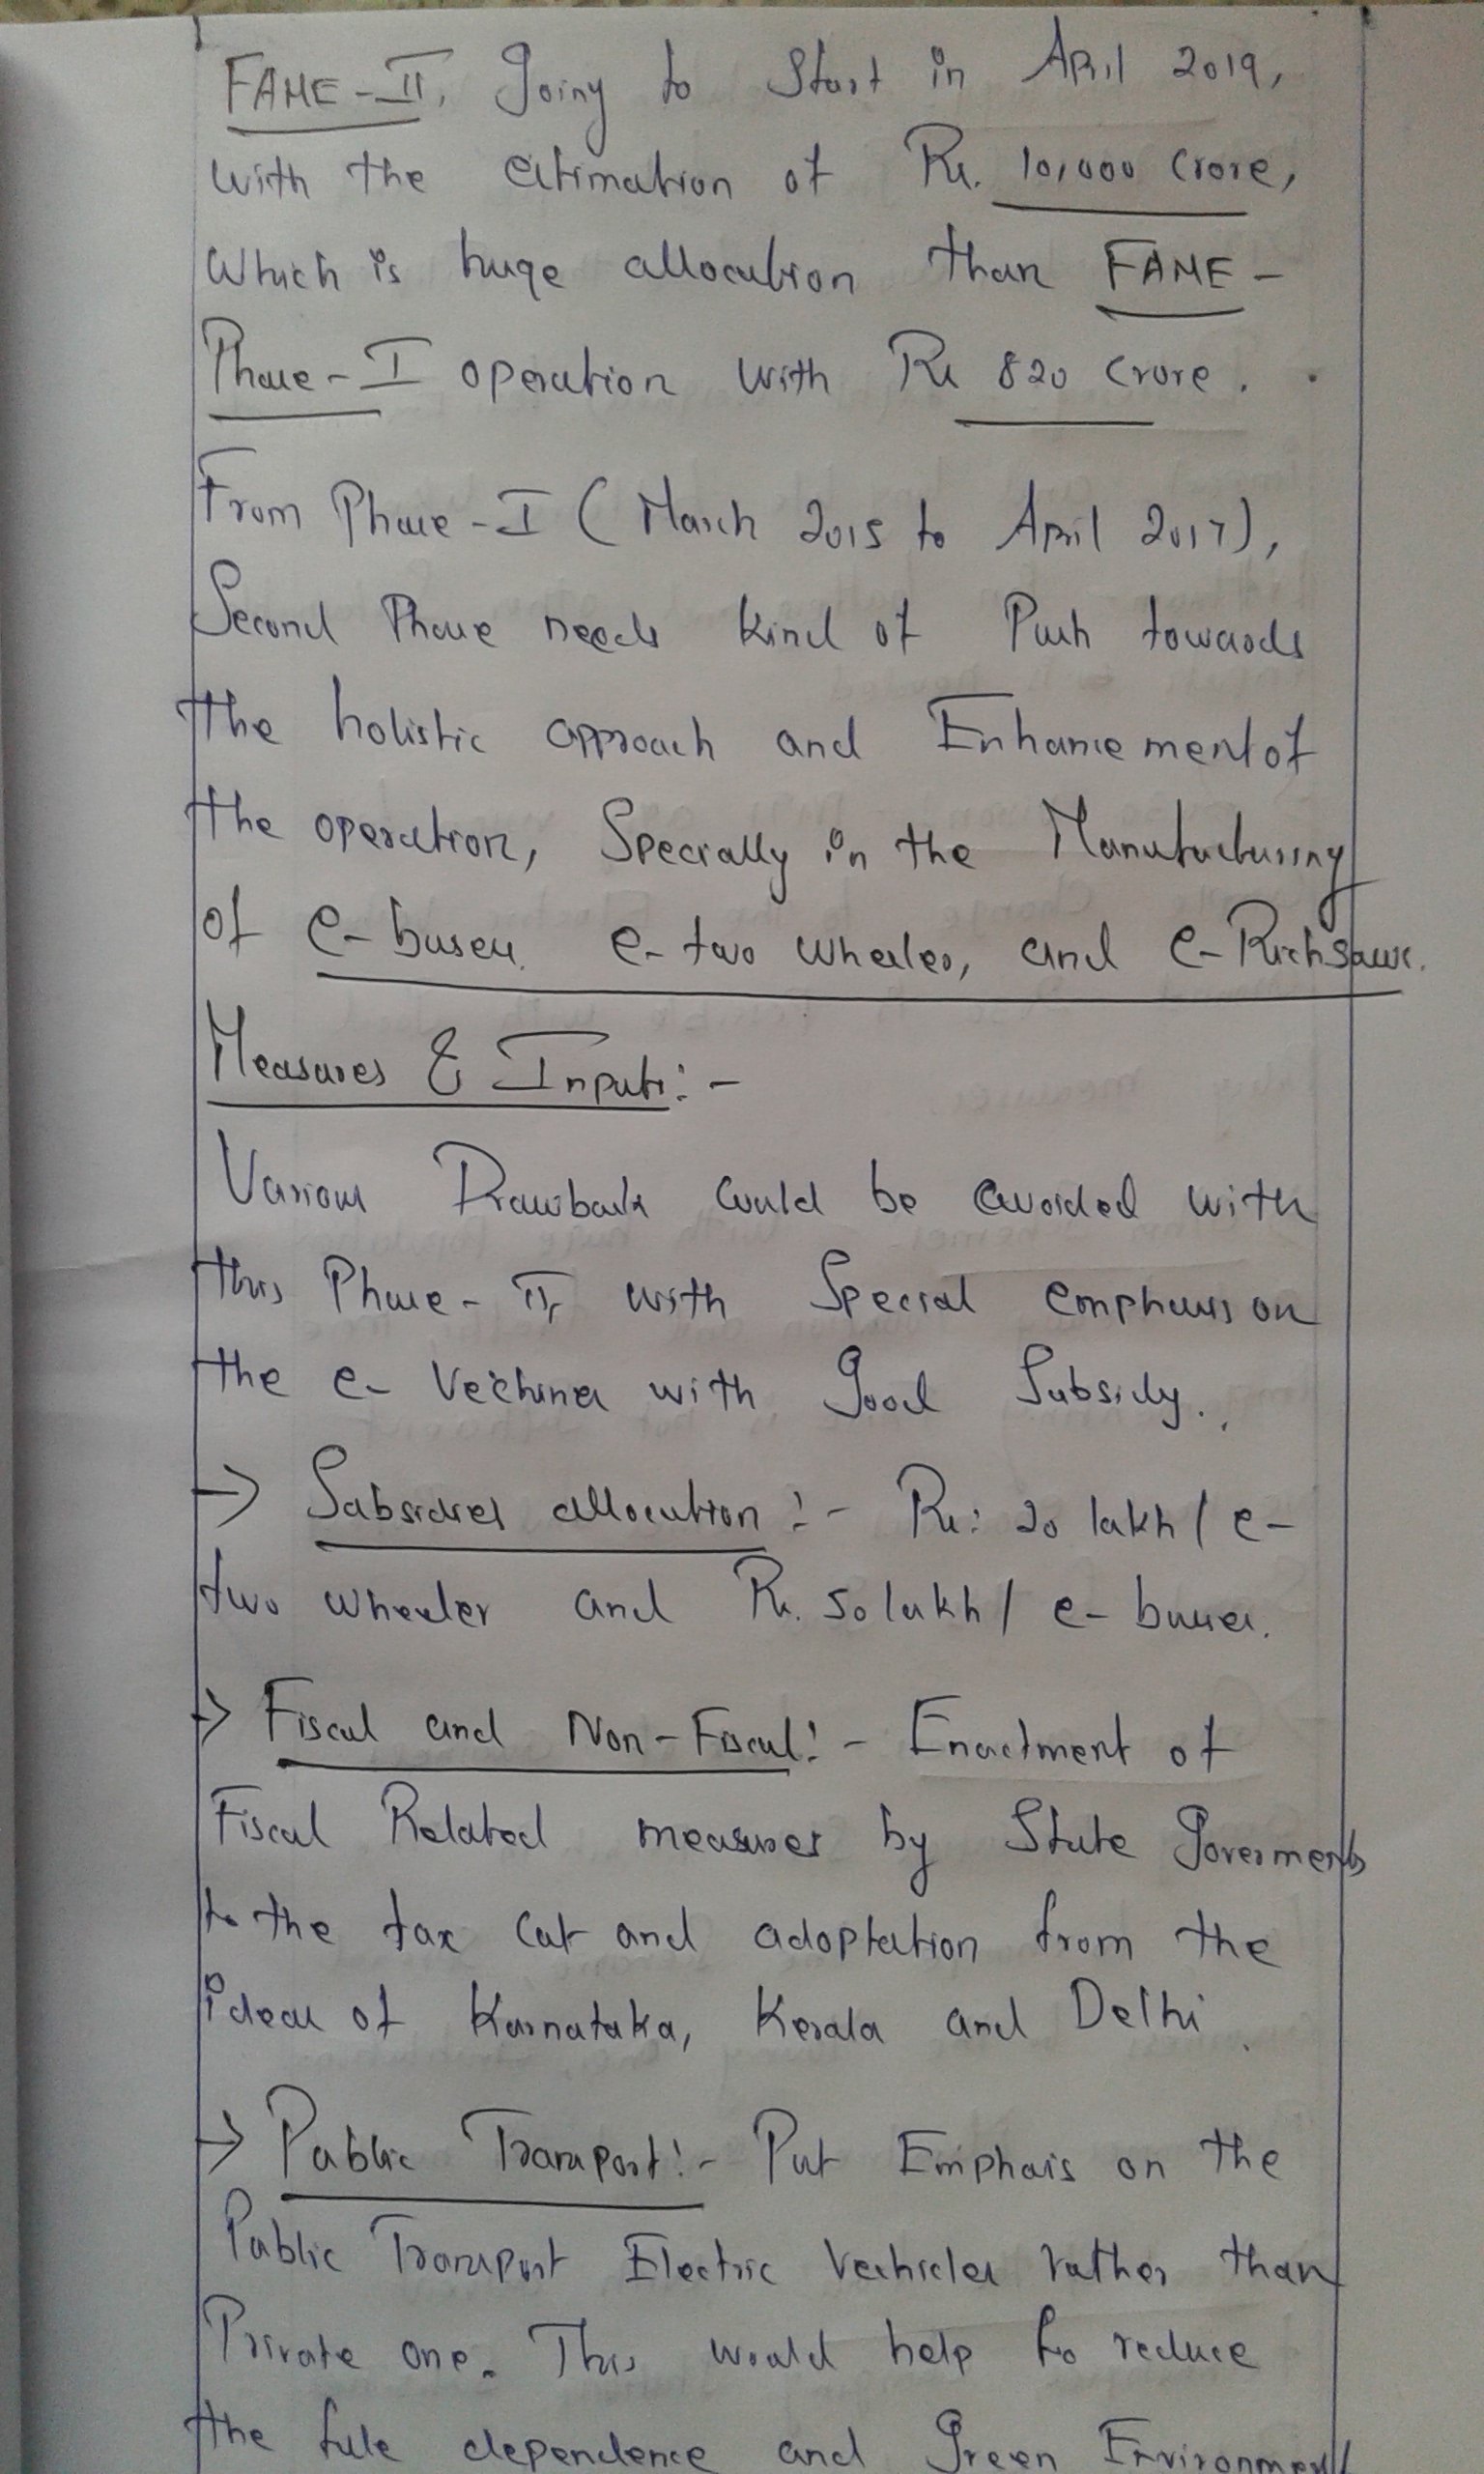 FAME-II, Going to Start in April 2019,
with the estimation of Rs. 10,000 crore,
Which is huge allocation than FAME-
Phase-I operation with Rs 820 crore.
From Phase-I (March 2015 to April 2017),
Second Phase needs kind of Push towards
the holistic approach and Enhancement of
the operation, Specially in the Manufacturing
of e-buses. e-two wheeler, and e-Richsaws.
Measures & Inputs:-
Various Drawback could be avoided with
this Phase-II, with Special emphasis on
the e- with Good Subsidy.
→ Subsidies allocation :- Rs: 20 lakh/ e-
two wheeler and Rs. 50 lakh/ e-buses.
→ Fiscal and Non-Fiscal:- Enactment of
Fiscal Related measures by State Goverments
to the tax cut and adoptation from the
ideas of Karnataka, Kerala and Delhi.
→ Public Transport:- Put Emphais on the
Public Transport Electric Vechicles rather than
Private one. This would help to reduce
the fule dependence and Green Environment